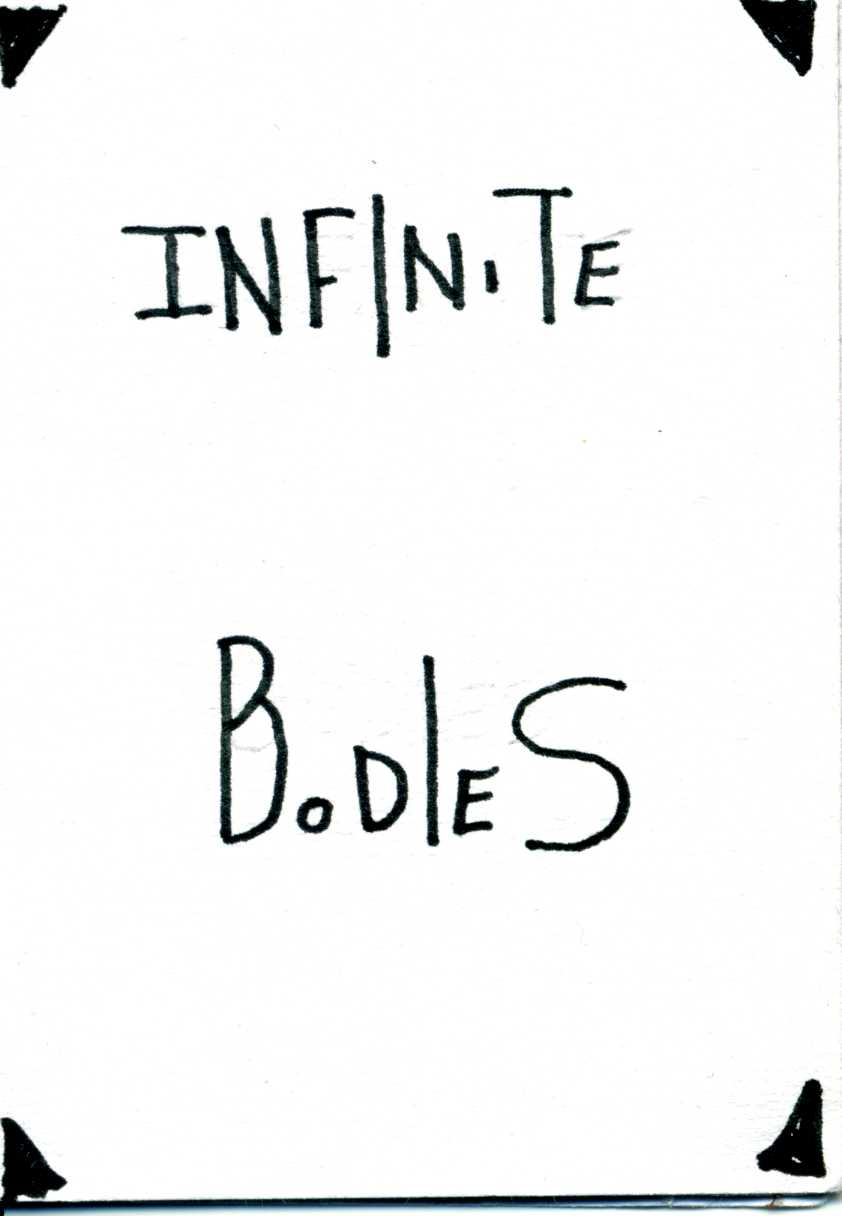 INFINITE
BODIES